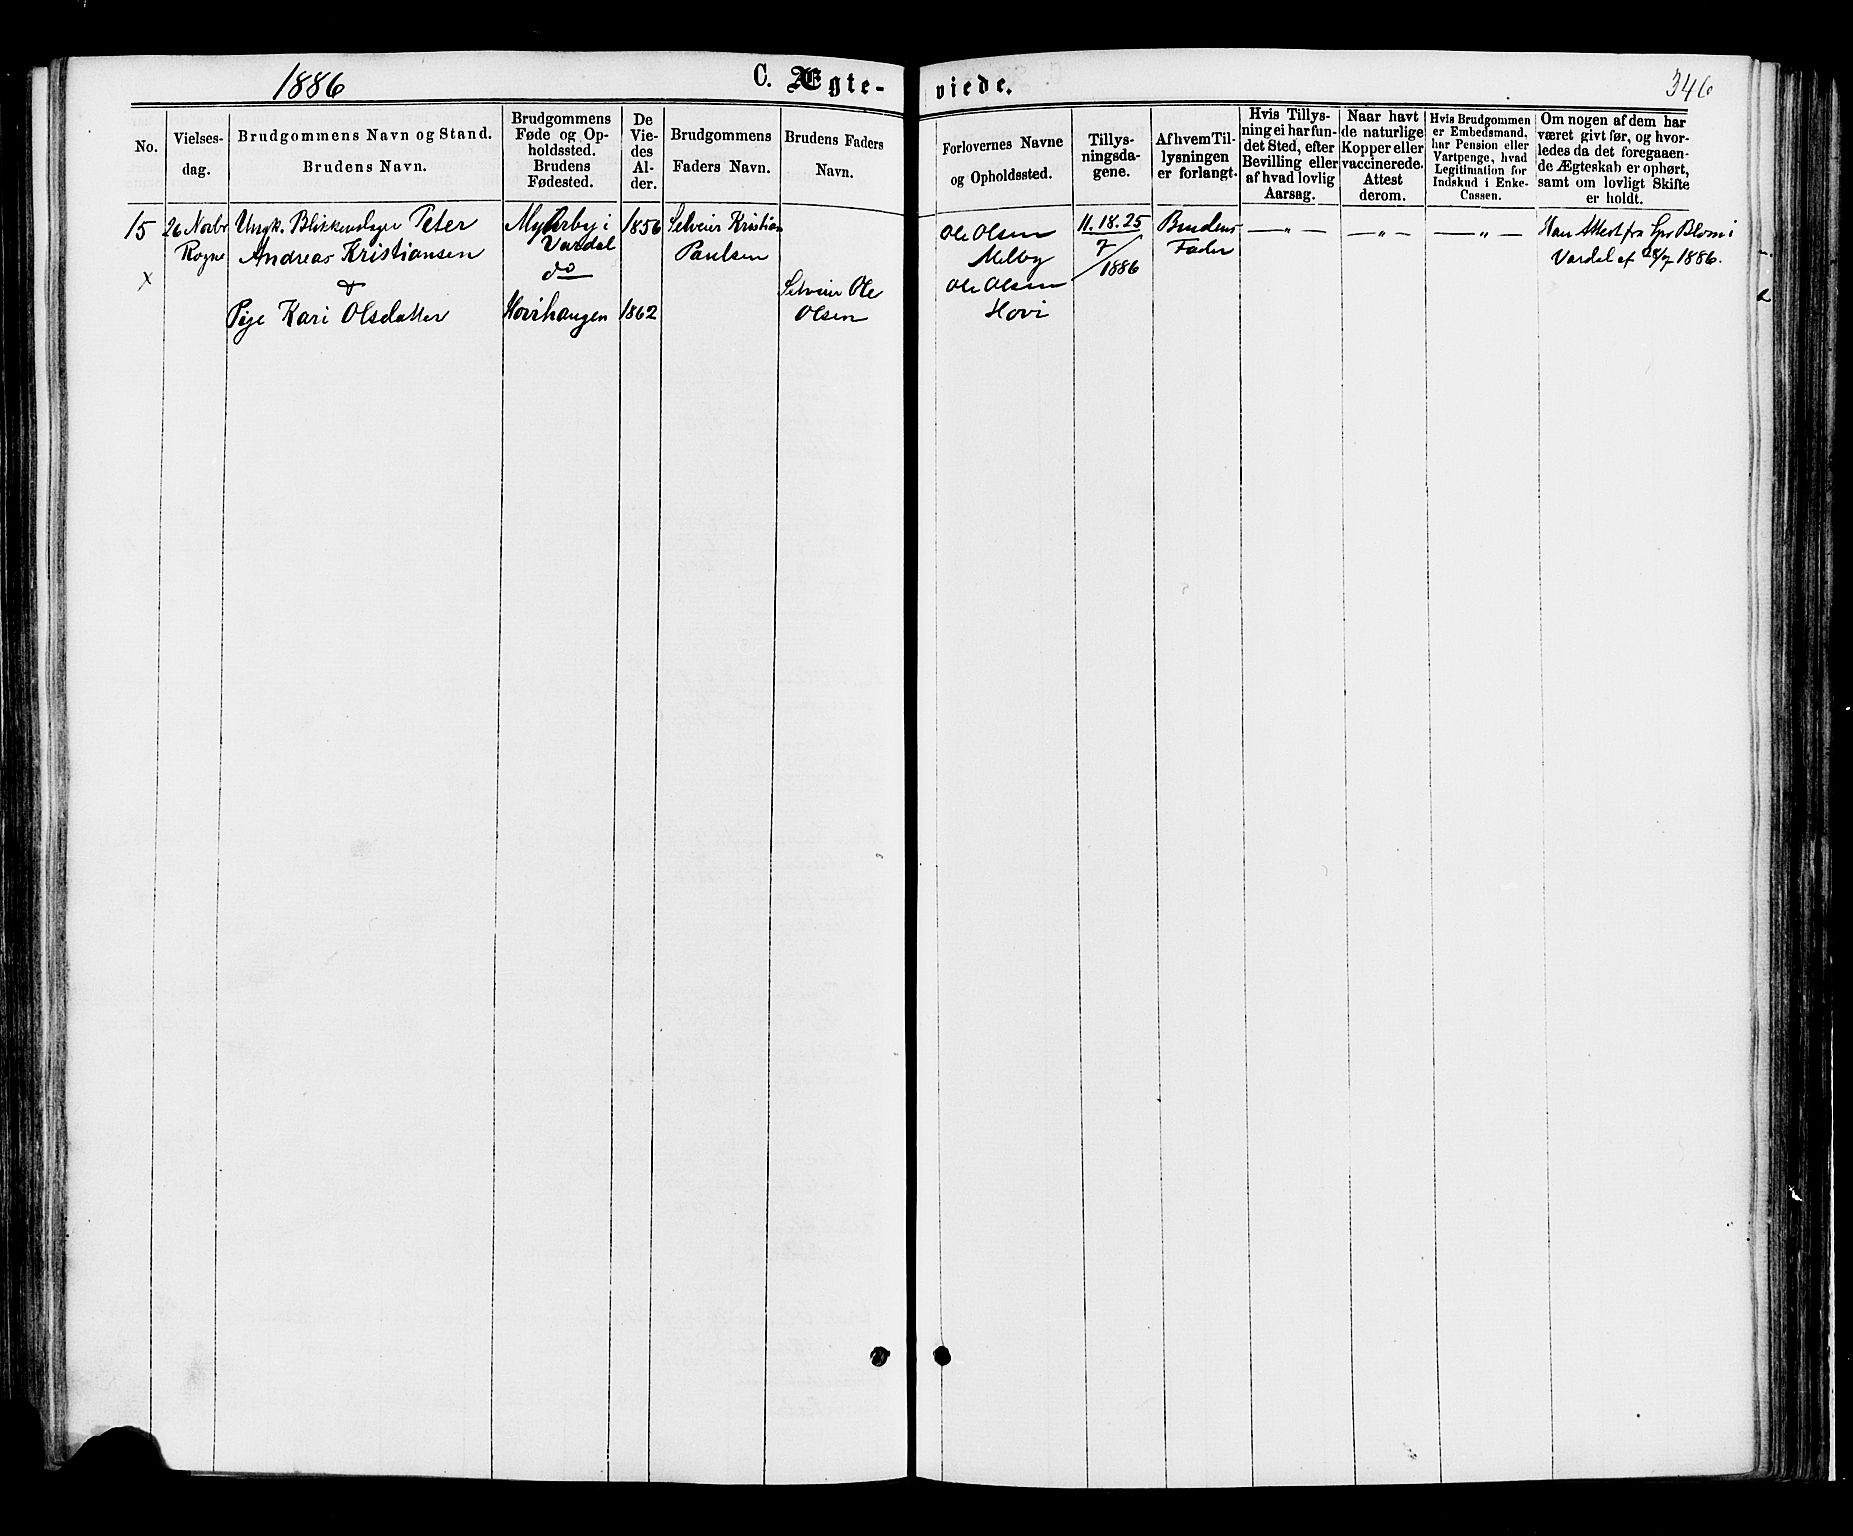 1886
C. Ægte-
viede.
346
No.
Vielses-
dag.
Brudgommens Navn og Stand.
Brudens Navn.
Brudgommens
Føde og Op-
holdssted.
Brudens
Fødested.
De
Vie-
des
Al-
der.
Brudgommens
Faders Navn.
Brudens Faders
Navn.
Forlovernes Navne
og Opholdssted.
Tillys-
ningsda-
gene.
Af hvem Til-
lysningen
er forlangt.
Hvis Tillys-
ning ei har fun-
det Sted, efter
Bevilling eller
af hvad lovlig
Aarsag.
Naar havt
de naturlige
Kopper eller
vaccinerede.
Attest
derom.
Hvis Brudgommen
er Embedsmand,
har Pension eller
Vartpenge, hvad
Legitimation for
Indskud i Enke-
Cassen.
Om nogen af dem har
været givt før, og hvor-
ledes da det foregaaen-
de Ægteskab er ophørt,
samt om lovligt Skifte
er holdt.
15
x
26 Novbr
Rogne
Ungk. Blikkenslager Peter
Andreas Kristiansen
&
Pige Kari Olsdatter
i
Vardal
do
Hovihaugen
1856
1862
Selveier Kristian
Paulsen
Selveier Ole
Olsen
Ole Olsen
Melby
Ole Olsen
Hovi
11. 18. 25
7
/ 1886
Brudens
Fader
— „ —
— „ —
— „ —
Han Attest fra Spr Blom i
Vardal af 28/7 1886.